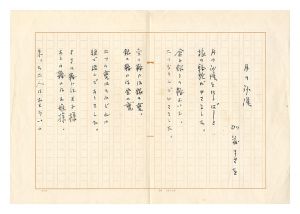 月の沙漠
加藤まさを
月の沙漠をはるばると
旅の駱駝がゆきました。
金と銀との鞍おいて、
二つならんでゆきました。
金の鞍には銀の甕、
銀の鞍には金の甕、
二つの甕はそれぞれに
紐で結んでありました。
さきの鞍には王子様
あとの鞍にはお姫様、
乗った二人はおそろいの